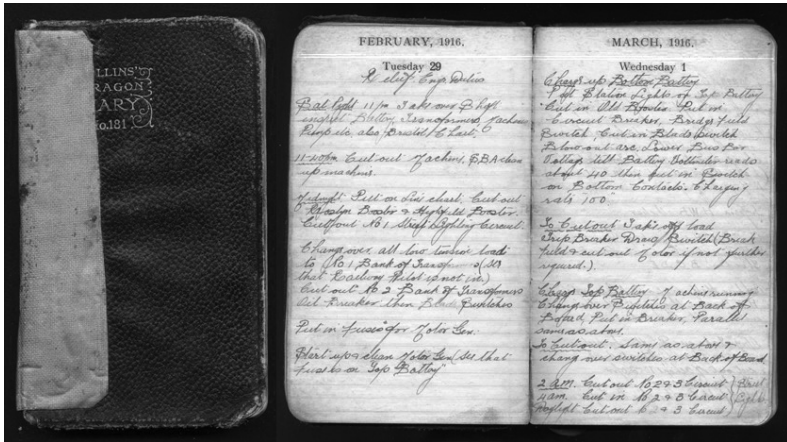 LLINS'
RAGON
ARY
No.181
FEBRUARY, 1916.
Tuesday 29
Relief Eng Duties
11 pm Take over
Battery, Transformers, Machines
also Bristol C Lect.
11-40pm Cut out Machine, clean
up machine.
Midnight Put on Line chart, Cut out
Booster & Highfield Booster
Cut out No 1 Street Lighting Circuit.
Change over all low tension load
to No 1 Bank of Transf (see
that Railway Pilot is not in.)
Cut out No 2 Bank of Transformers
Oil Breaker then Blade Switches
Put in fuses for Motor Gen.
Start up & clean Motor Gen (see that
fuse is on Top Battery"
MARCH, 1916.
Wednesday 1
Charge up Bottom Battery
Put Station Lights on Top Battery
Cut in Old Booster Put in
Circuit Breaker, Bridge field
Switch Cut in Blade Switch
Blow out arc, Lower Bus Bar
Voltage till Battery Voltmeter reads
about 40 then put in Switch
on Bottom Contacts. Charging
rate 100"
To Cut out Take off load
Trip Breaker Draw Switch (Break
field & cut out Motor if not further
required.)
Charge Top Battery Machine running
Change over Switches at Back of
Board, Put in Breaker, Parallel
same as above.
To Cut out. Same as above &
change over switches at Back of Board
2 AM. Cut out No 2 & 3 Circuit Street
4 am. Cut in No 2 & 3 Circuit Lights
Daylight Cut out & 3 Circuit